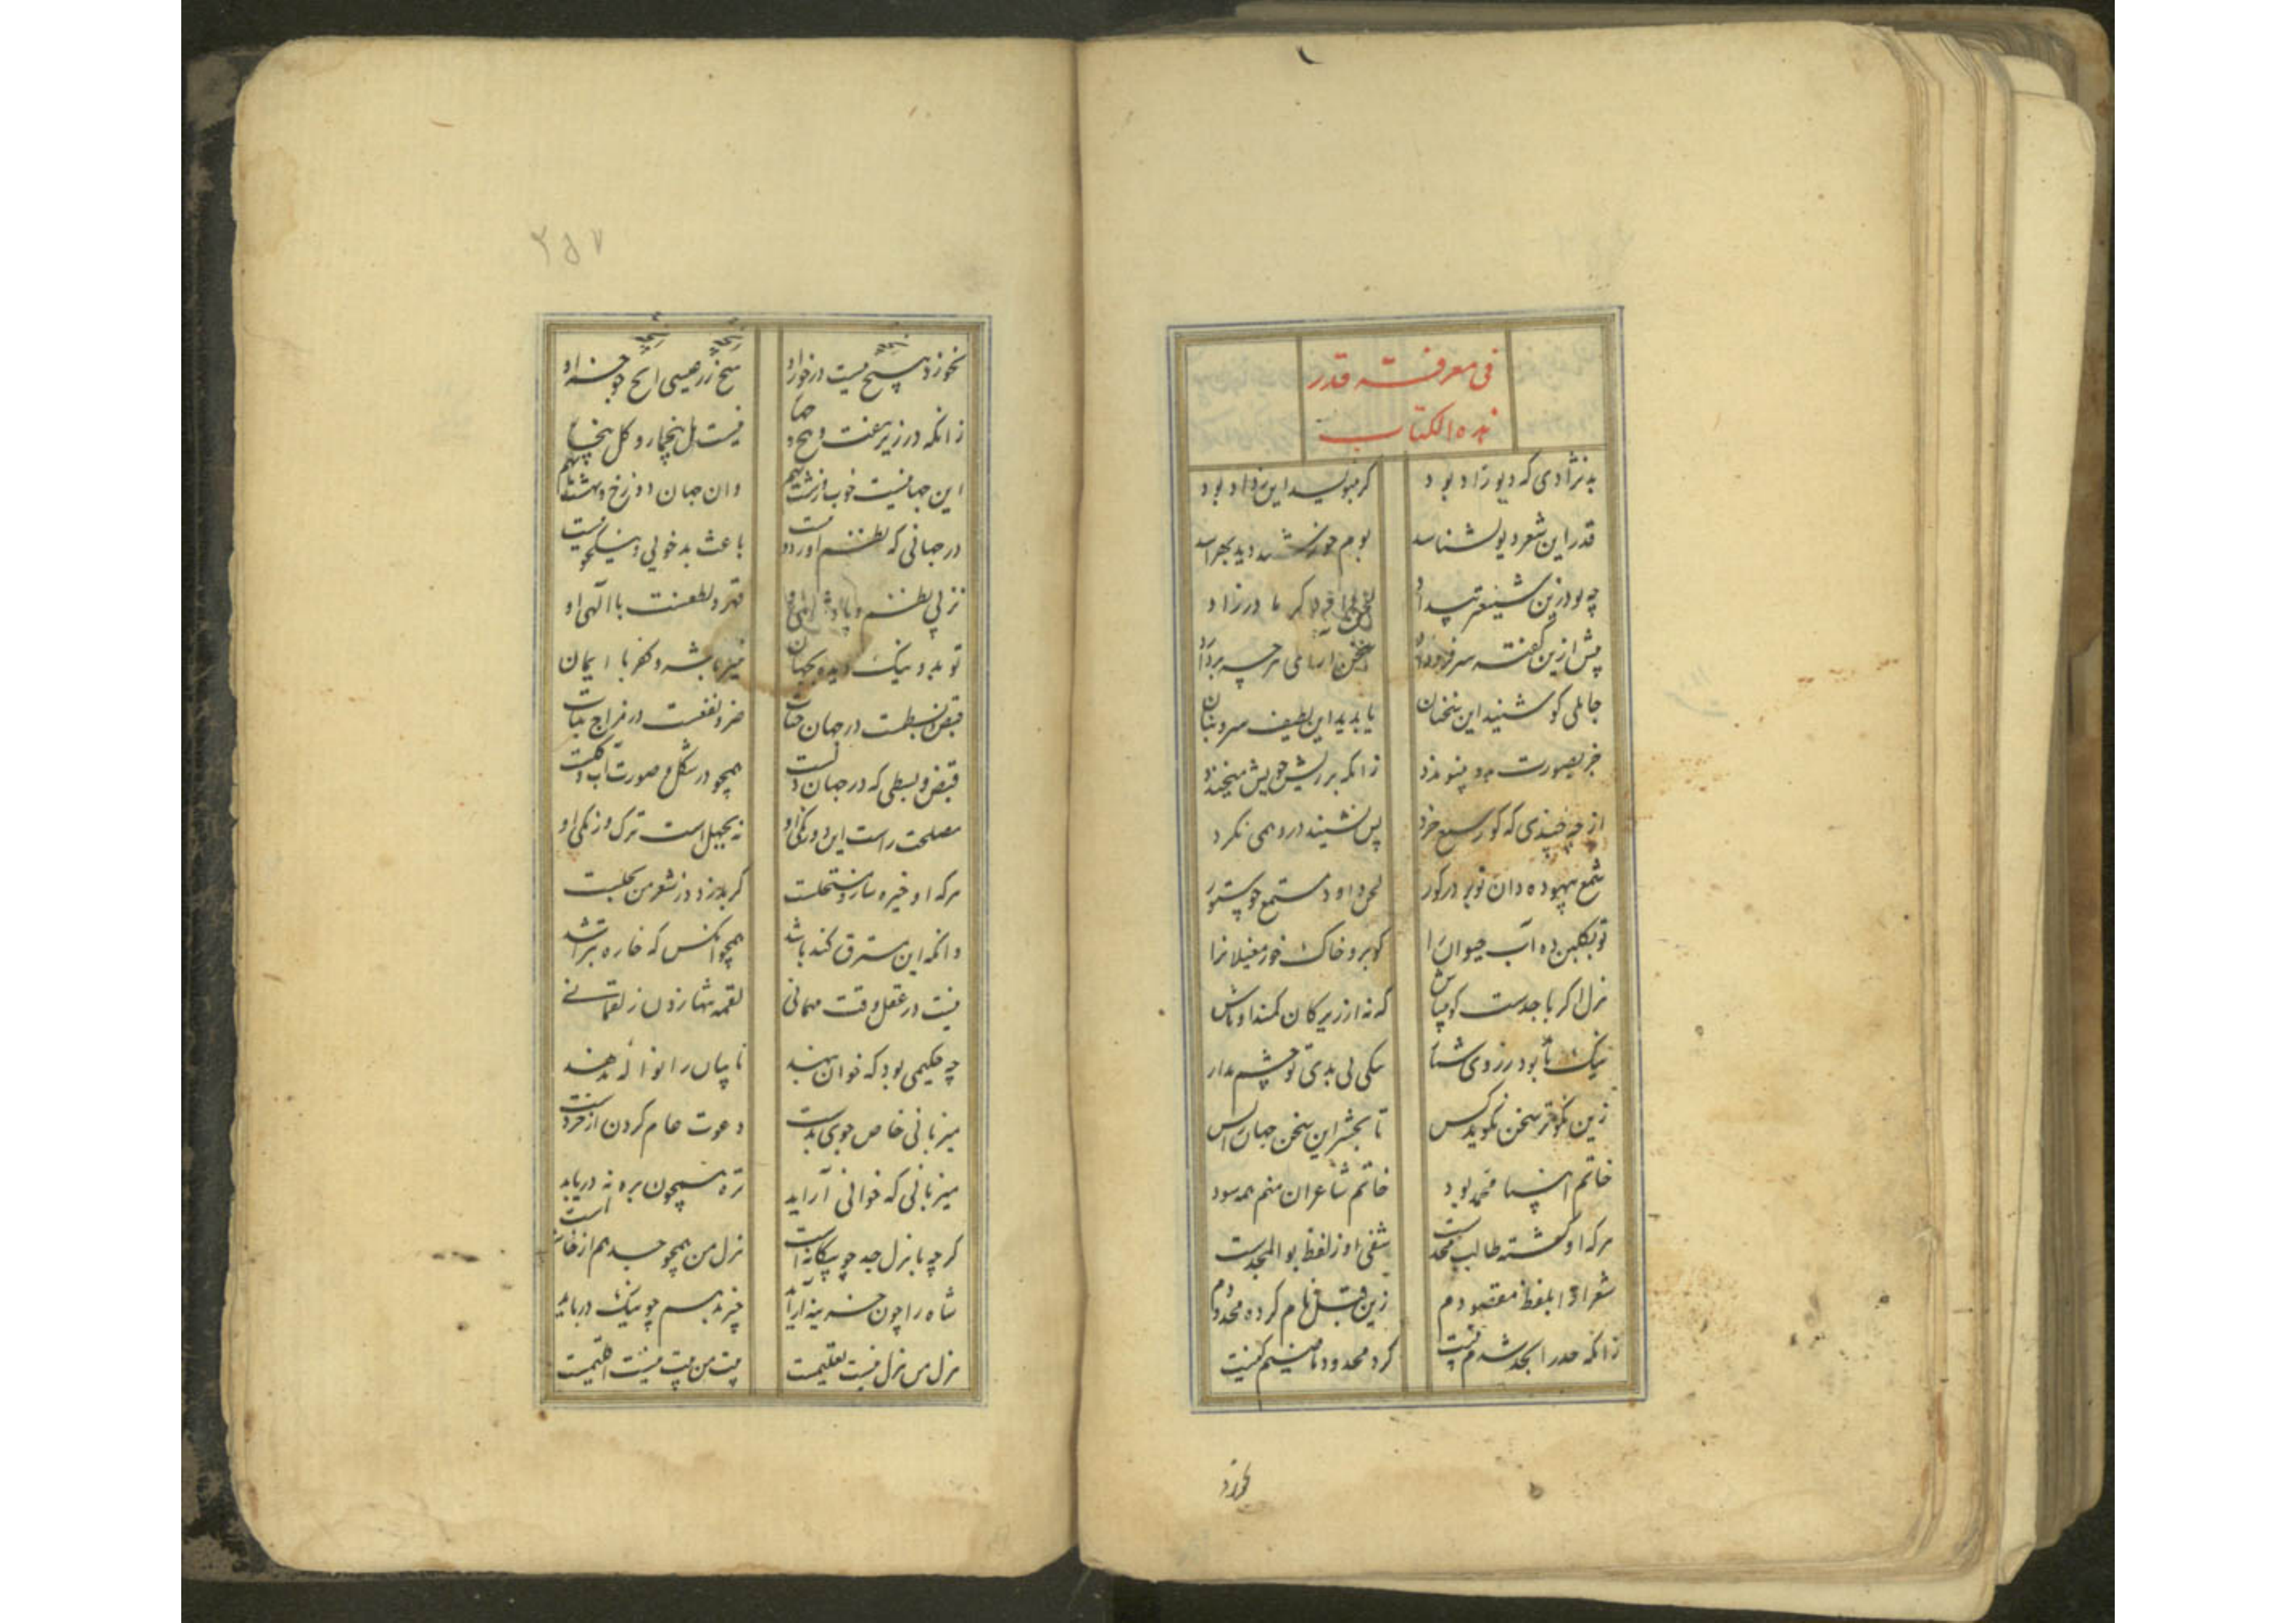 فی معرفة قدر
هذه الکتاب
بد نژادی که دیو زاد بود
کر نبوسد این نژاد بود
قدر این شعر دیو نشناسد
بوم خورشید دید بهراسد
چه بود زین شنیع‌تر بیداد
لحن داود و کر مادرزاد
پیش ازین گفته سر فرود
سخن ار نامی
جاهلی کو شنید این سخنان
یا بدید این لطیف سروبنان
خر بصورت بدو بنپوندد
زانکه بر ریش خویش میخندد
از چه چیزی که کور سمع خرد
پس نشیند درو همی نکرد
شمع بیهوده دان تو بر در کور
لحن داود و مستمع چو ستور
تو بکلبن ده آب حیوان را
کو برو خاک خور مغیلانرا
هزل اکر با جدست کو می‌باش
که نه از زیرکان کمند اوباش
نیک با بد بود درزدی شمار
نیکی بی بدی تو چشم مدار
زین نکوتر سخن نکوید کس
تا بحشر این سخن جهان را بس
خاتم انبیا محمد بود
خاتم شاعران منم همه سود
هرکه او کشته طالب مجدست
شفی او ز لفظ بو المجدست
شعرا را بلفظ مقصودم
زین قبل نام کرده محدودم
زانکه حد را بجد شدم نیت
کرد محدود ماضیم کنیت
نخورد
۲۵۷
نخورد هیچ نیست در خور او
هیچ زر عیسی
زانکه در زیر هفت و پنج و چهار
نیست مل بیخمار و کل بیخار
این جهانیست خوب و زشت بهم
وان جهان دوزخ و بهشت بهم
در جهانی که نظم آوردست
باعث بدخویی و نیکو
قهر و لطفست با الهی او
تو بد و نیک دیده بجهان
خیر با شر و کفر با ایمان
قبض و بسطست در جهان حیات
ضر و نفعست در مزاج نبات
قبض و بسطی که در جهان دلست
همچو در شکل و صورت آب و کلست
مصلحت راست این دو رنکی او
نه بجهل است ترک و زنکی او
هرکه او خیره ساز و مستحلست
کر بدزدد ز شعر من بحلست
وانکه این سترق کند باشد
همچو آنکس که خاره بتراشد
نیست در عقل وقت مهمانی
لقمه تنها زدن ز لقمانی
چه حکیمی بود که خوان بنهد
ناسپاس را نواله ندهد
میزبانی خاص جوی بدست
دعوت عام کردن از خردست
میزبانی که خوانی آراید
تره همچون بره نه دریابد
کرچه با هزل جد چو بیکانه است
هزل من همچو جد هم از خانه است
شاه را چون خزینه آراید
چیز بد هم چو نیک دریابد
هزل من هزل نیست تعلیمست
بیت من بیت نیست اقلیمست